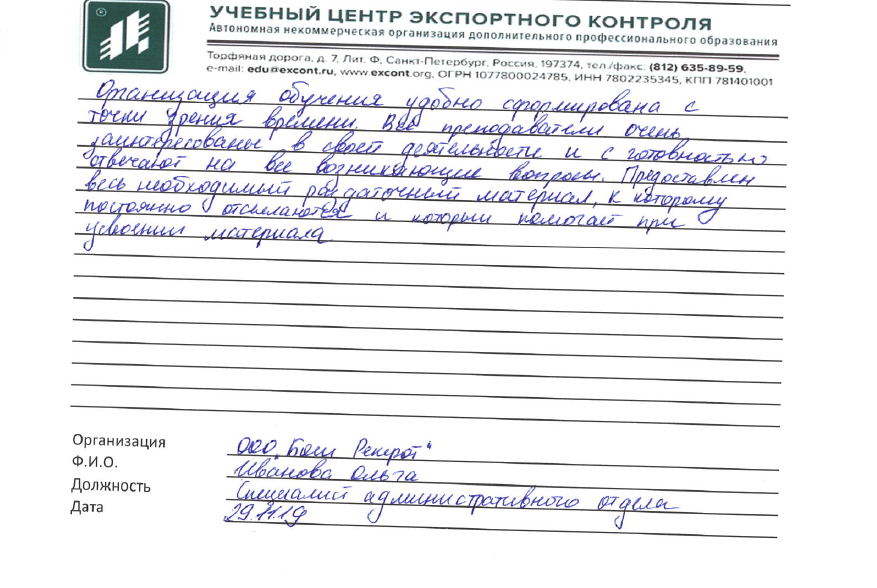 УЧЕБНЫЙ ЦЕНТР ЭКСПОРТНОГО КОНТРОЛЯ
Автономная некоммерческая организация дополнительного профессионального образования
Торфяная дорога, д. 7, Лит. Ф, Санкт-Петербург, Россия, 197374, тел./факс: (812) 635-89-59,
e-mail: edu@excont.ru, www.excont.org, ОГРН 1077800024785, ИНН 7802235345, КПП 781401001
Организация обучения удобно сформирована с
точки зрения времени. Все преподаватели очень
заинтересованы в своей деятельности и с готовностью
отвечают на все возникающие вопросы. Предоставлен
весь необходимый раздаточный материал, к которому
постоянно отсылаются и который помогает при
усвоении материала
Организация ООО „Бош Рексрот"
Ф.И.О. Иванова Ольга
Должность Специалист административного отдела
Дата 29.11.19